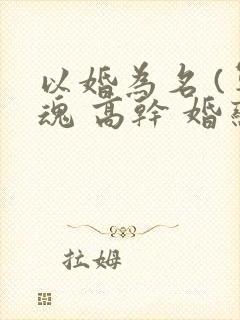 以婚為名(
魂 高幹 婚
拉姆